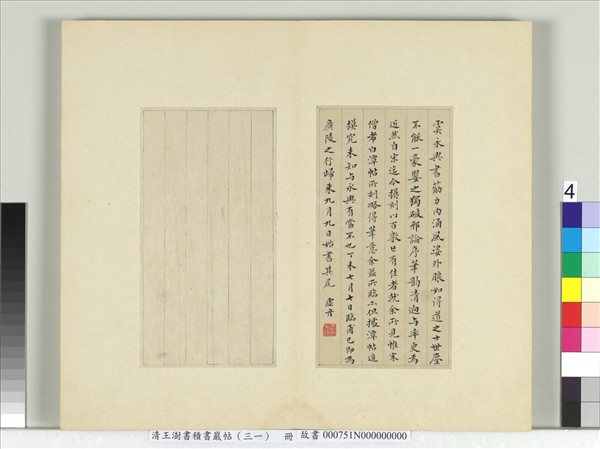 虞永興書筋力內涵風姿外朗如得道之士世塵
不能一豪嬰之獨破邪論序筆韻清迥與率更為
近然自宋迄今摸刻以百數也有佳者就余所見惟宋
僧希白潭帖所刻略得筆意余茲所臨亦但據潭帖追
摸究未知与永興有當不也丁未七月七日臨甫已即為
廣陵之行歸來九月九日始書其尾 虛舟
清王澍書積書巖帖（三一） 冊 故書 000751N000000000
4